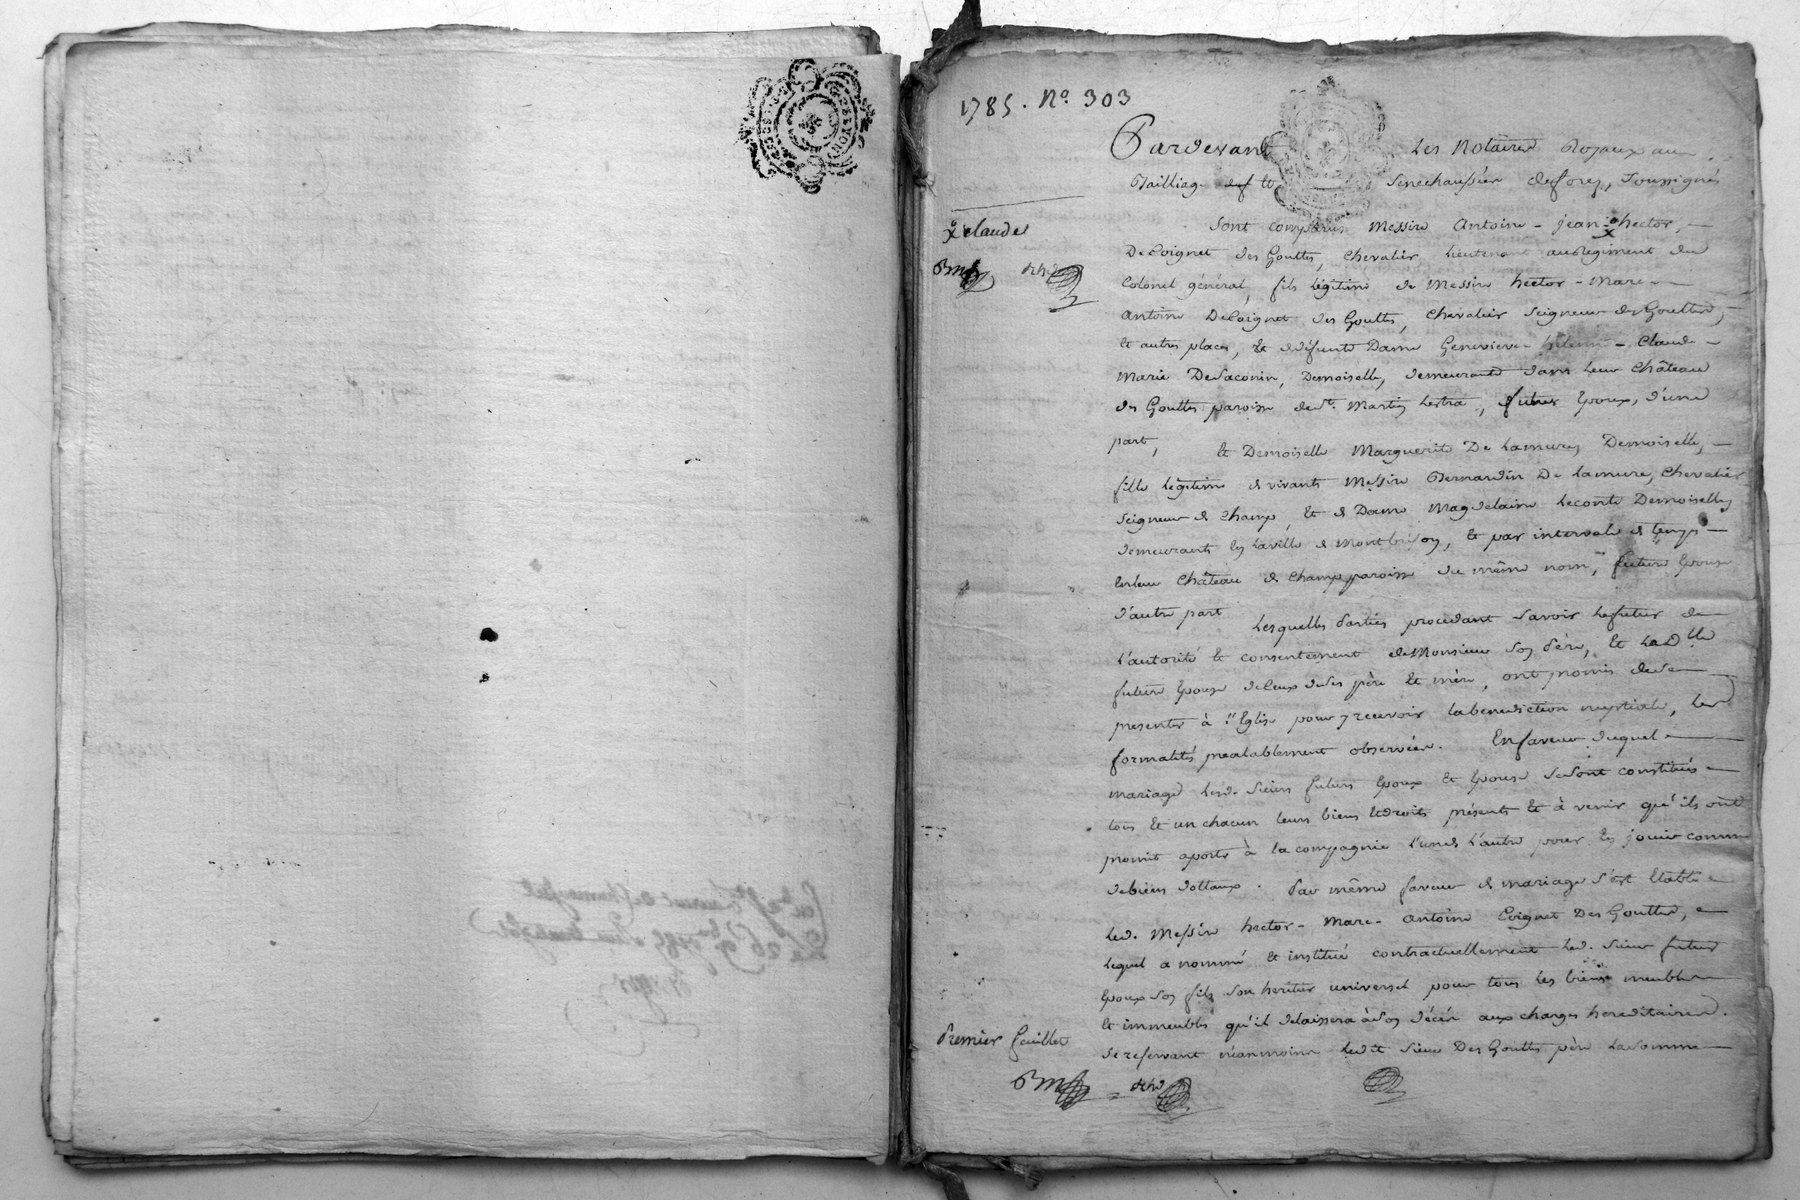 1785. No. 303
Pardevant Les Notaires Royaux au
Bailliage et Senechaussée deforez, Soussignés
x claude
Sont comparus Messire Antoine - jean x hector,
DeCoignet des Gouttes, Chevalier Lieutenant auregiment du
Colonel général, fils légitime de Messire hector - Marc -
antoine DeCoignet des Gouttes, Chevalier Seigneur desGouttes,
et autres places, et dedéfunte Dame Genevieve - - Claude -
Marie DeSaconin, Demoiselle, demeurants dans leur Château
des Gouttes paroisse de St. Martin Lestra, futur Epoux, d'une
part, Et Demoiselle Marguerite De Lamure, Demoiselle,
fille légitime de vivants Messire Bernardin De Lamure, Chevalier
Seigneur de Champ, Et de Dame Magdelaine Leconte Demoiselle,
demeurants en Laville de Montbrison, Et par intervale de temps
enleur Château de Champ paroisse du même nom, future Epouse
d'autre part
Lesquelles Parties procedant Savoir Lefutur de
L'autorité Et consentement deMonsieur Son Père, Et LaDlle
future Epouse deceux deses père Et mère, ont promis dese
presenter à l'Eglise pour y recevoir labenediction nuptiale, les
formalités prealablement observées. Enfaveur duquel
mariage lesd. Sieurs futurs Epoux et Epouse seSont constitués
tous Et un chacun leurs biens Etdroits présents Et à venir qu'ils ont
promit aporter à la compagnie l'unde L'autre pour En jouir comme
debiens dottaux. Par même faveur de mariage s'est Etabli
Led. Messire hector - Marc - antoine Coignet Des Gouttes,
Lequel a nommé Et institué contractuellement Led. Sieur futur
Epoux Son fils Son heritier universel pour tous les biens meubles
Et immeubles qu'il delaissera àSon décés aux charges hereditaires.
Se reservant néanmoins Ledit Sieur Des Gouttes père LaSomme
Premier feuillet